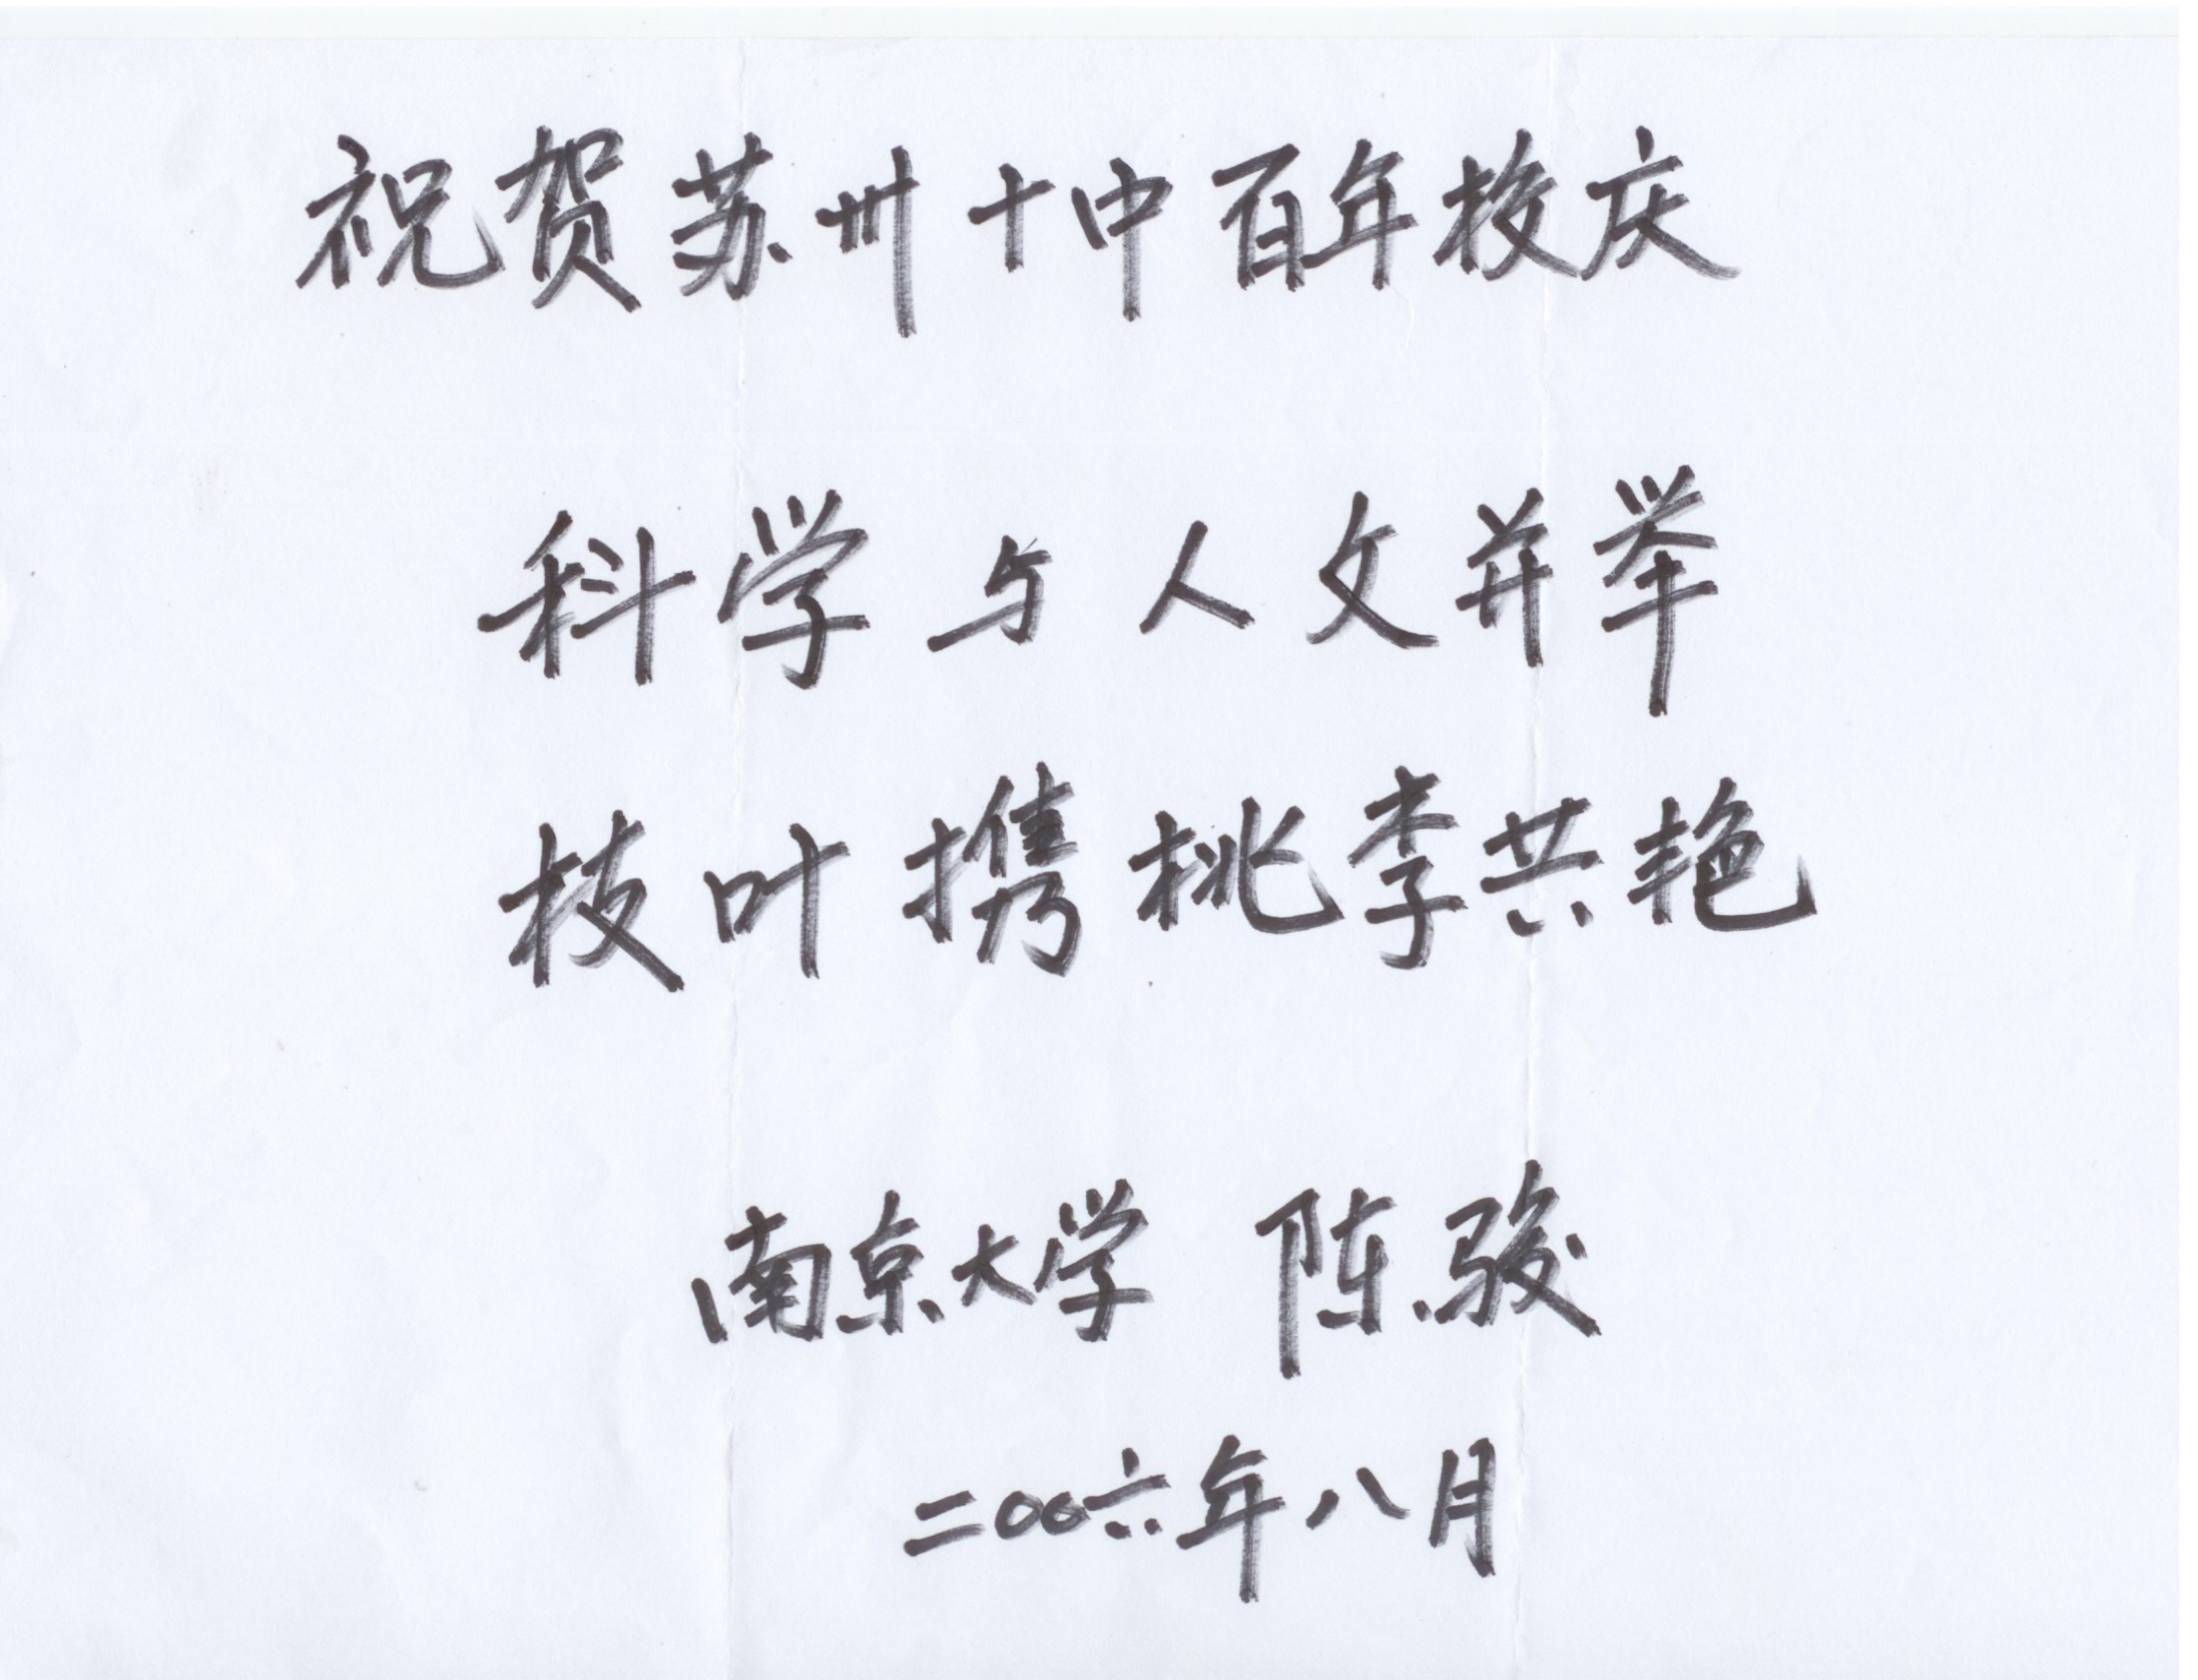 祝贺苏州十中百年校庆
科学与人文并举
枝叶携桃李共艳
南京大学 陈骏
二〇〇六年八月